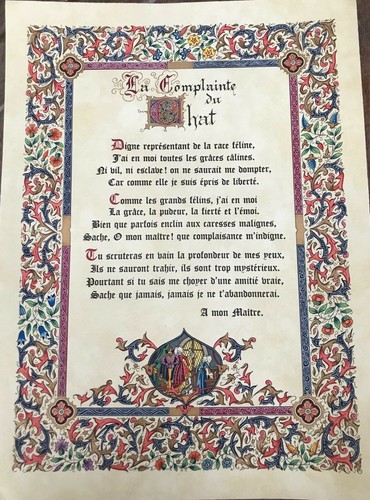 La Complainte
du
Chat
Digne représentant de la race féline,
J'ai en moi toutes les grâces câlines.
Ni vil, ni esclave! on ne saurait me dompter,
Car comme elle je suis épris de liberté.
Comme les grands félins, j'ai en moi
La grâce, la pudeur, la fierté et l'émoi.
Bien que parfois enclin aux caresses malignes,
Sache, O mon maître! que complaisance m'indigne.
Tu scruteras en vain la profondeur de mes yeux,
Ils ne sauront trahir, ils sont trop mystérieux.
Pourtant si tu sais me choyer d'une amitié vraie,
Sache que jamais, jamais je ne t'abandonnerai.
A mon Maître.